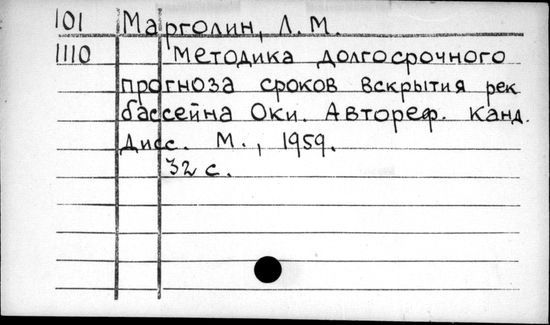 101 Марголин, Л. М.
1110 Методика долгосрочного
прогноза сроков вскрытия рек
бассейна Оки. Автореф. канд.
дисс. М., 1959.
32 с.